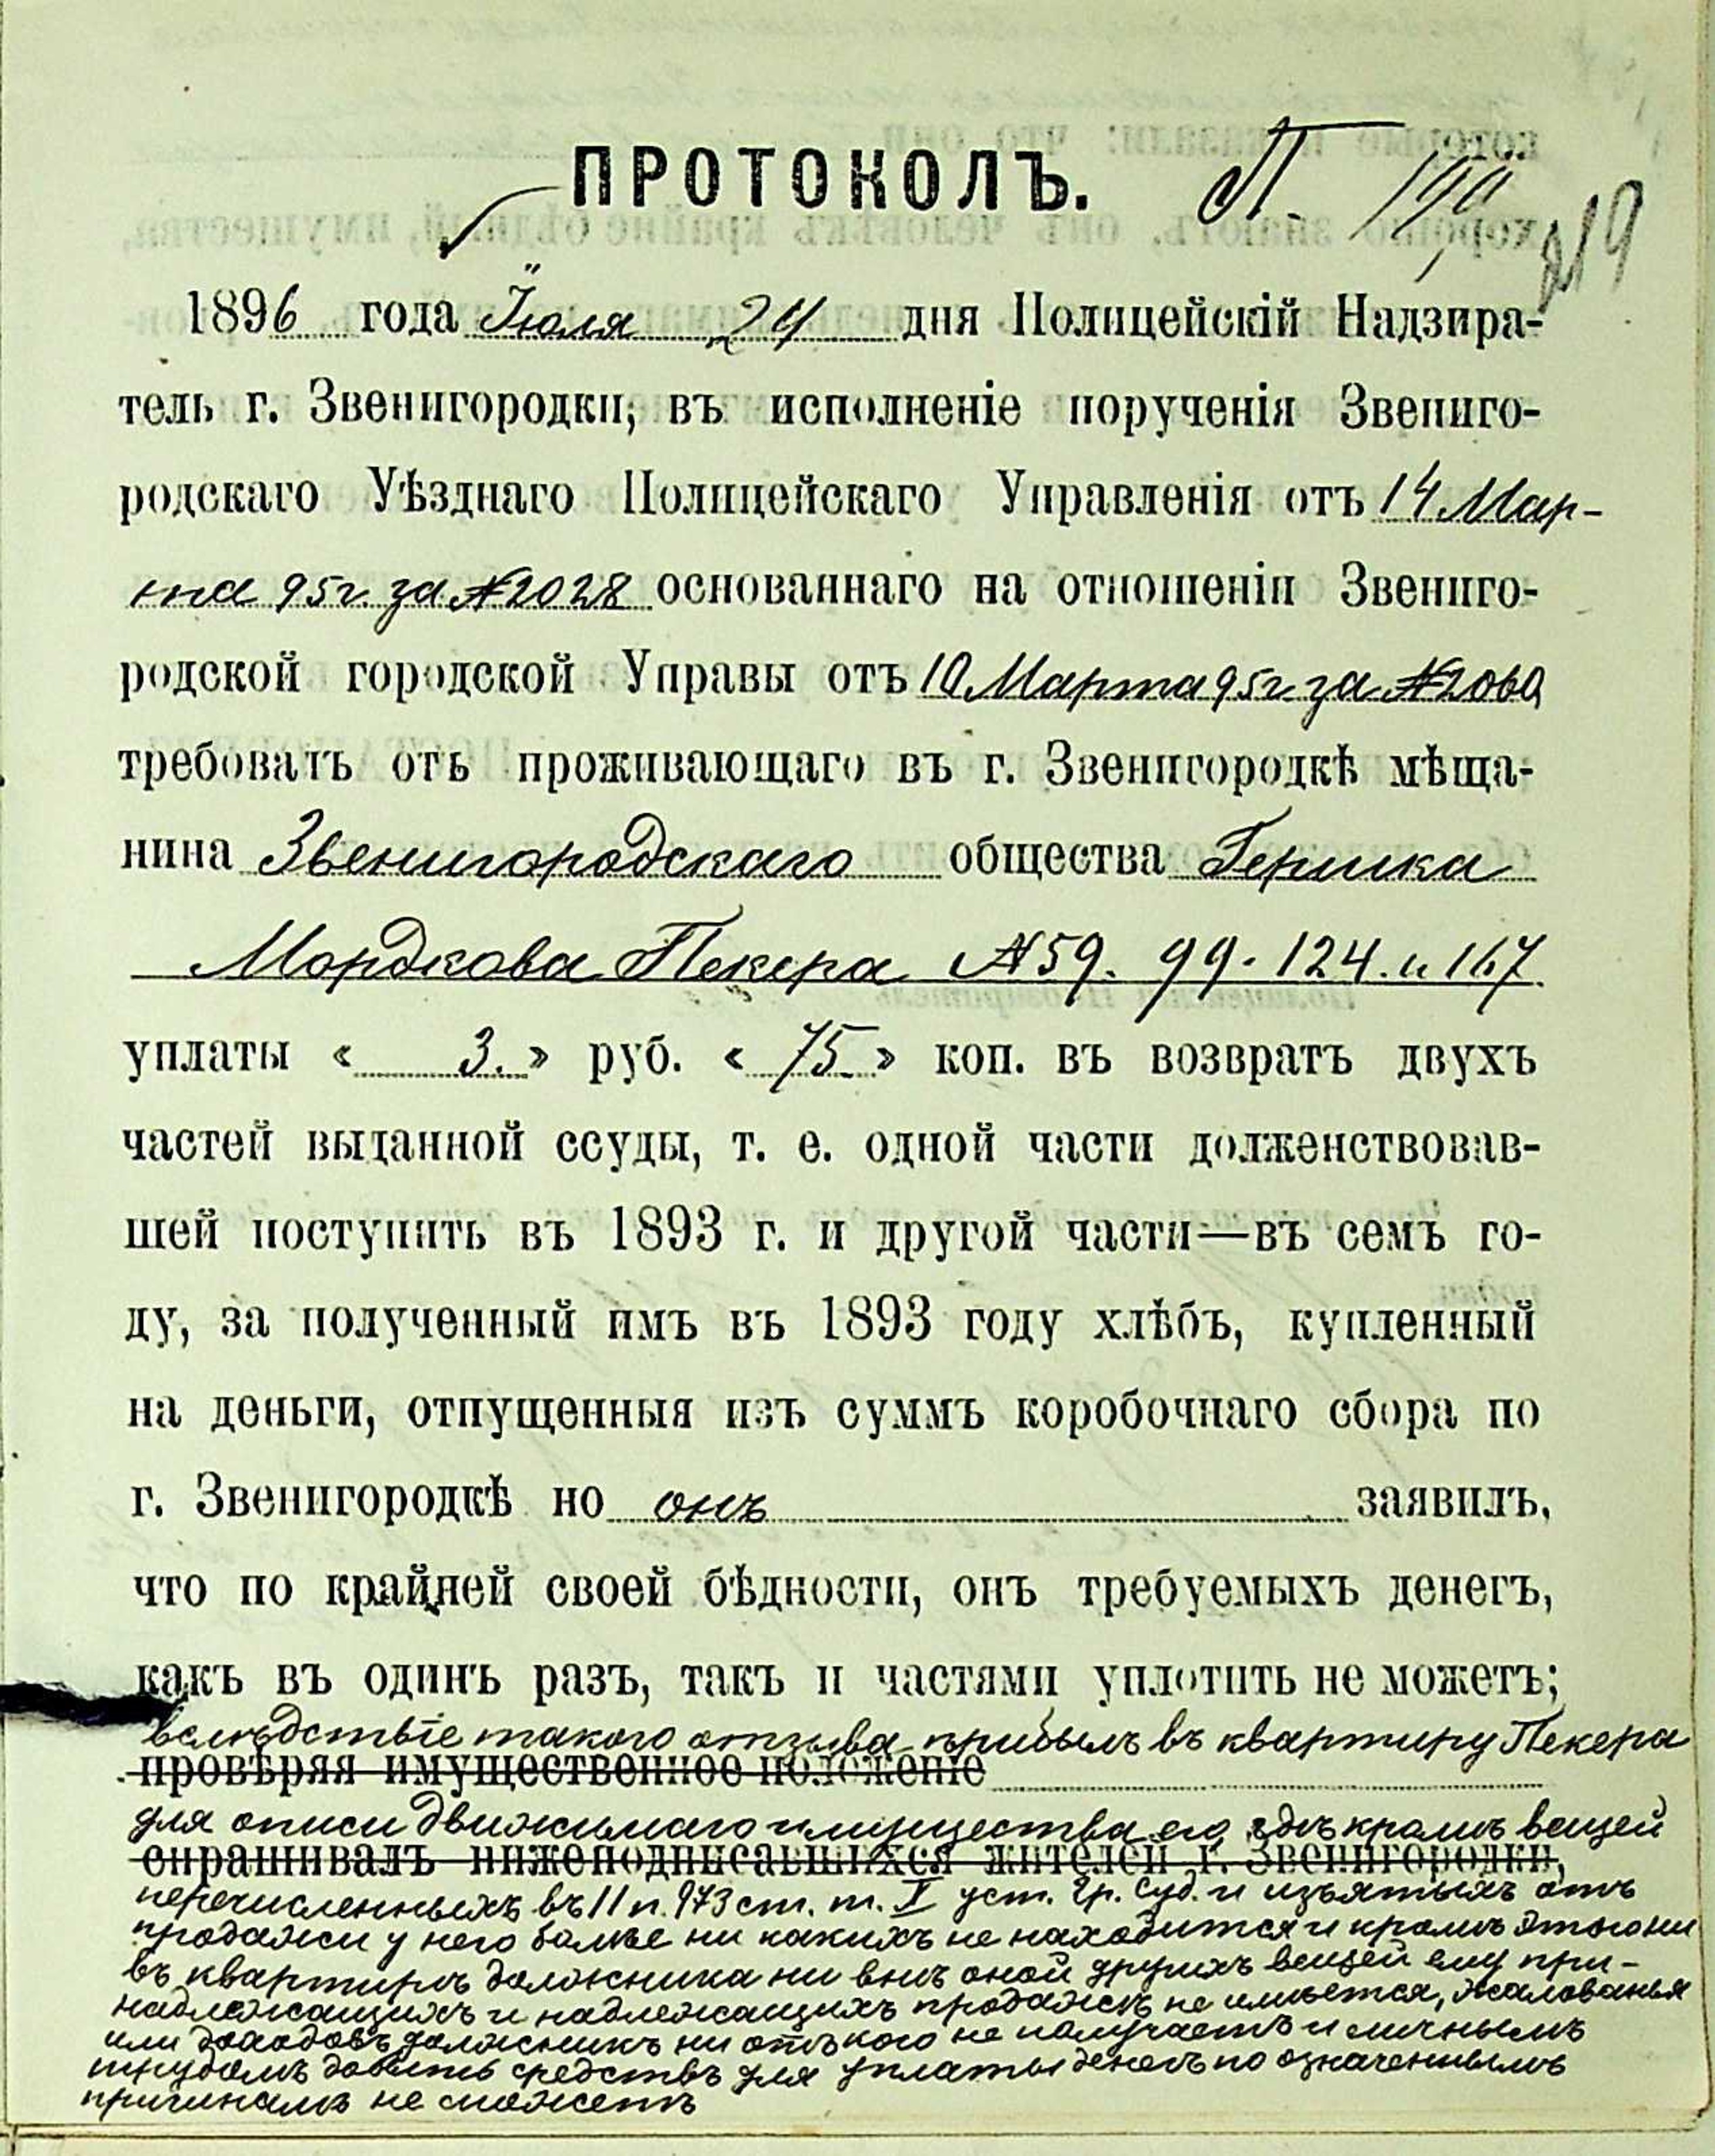 ПРОТОКОЛЪ. П. 190
219
1896 года Іюля 24 дня Полицейскій Надзира-
тель г. Звенигородки, въ исполненіе порученія Звениго-
родскаго Уѣзднаго Полицейскаго Управленія отъ 14 Мар-
та 95 г. за № 2028 основаннаго на отношеніи Звениго-
родской городской Управы отъ 10 Марта 95 г. за № 2060
требовать отъ проживающаго въ г. Звенигородкѣ мѣща-
нина Звенигородскаго общества Гершка
Мордкова Пекера № 59. 99. 124. и 167
уплаты « 3. » руб. « 75 » коп. въ возвратъ двухъ
частей выданной ссуды, т. е. одной части долженствовав-
шей поступить въ 1893 г. и другой части—въ семъ го-
ду, за полученный имъ въ 1893 году хлѣбъ, купленный
на деньги, отпущенныя изъ суммъ коробочнаго сбора по
г. Звенигородкѣ но онъ заявилъ,
что по крайней своей бѣдности, онъ требуемыхъ денегъ,
какъ въ одинъ разъ, такъ и частями уплотить не можетъ;
вслѣдствіе такого отзыва прибылъ въ квартиру Пекера
провѣряя имущественное положеніе
для описи движимаго имущества его, гдѣ кромѣ вещей
спрашивалъ нижеподписавшихся жителей г. Звенигородки,
перечисленныхъ въ 11 п. 973 ст. т. X уст. гр. суд. и изъятыхъ отъ
продажи у него болѣе ни какихъ не находится и кромѣ этого ни
въ квартирѣ должника ни внѣ оной другихъ вещей ему при-
надлежащихъ и надлежащихъ продажѣ не имѣется, жалованья
или доходовъ должникъ ни отъ кого не получаетъ и личнымъ
трудомъ добыть средствъ для уплаты денегъ по означеннымъ
причинамъ не можетъ